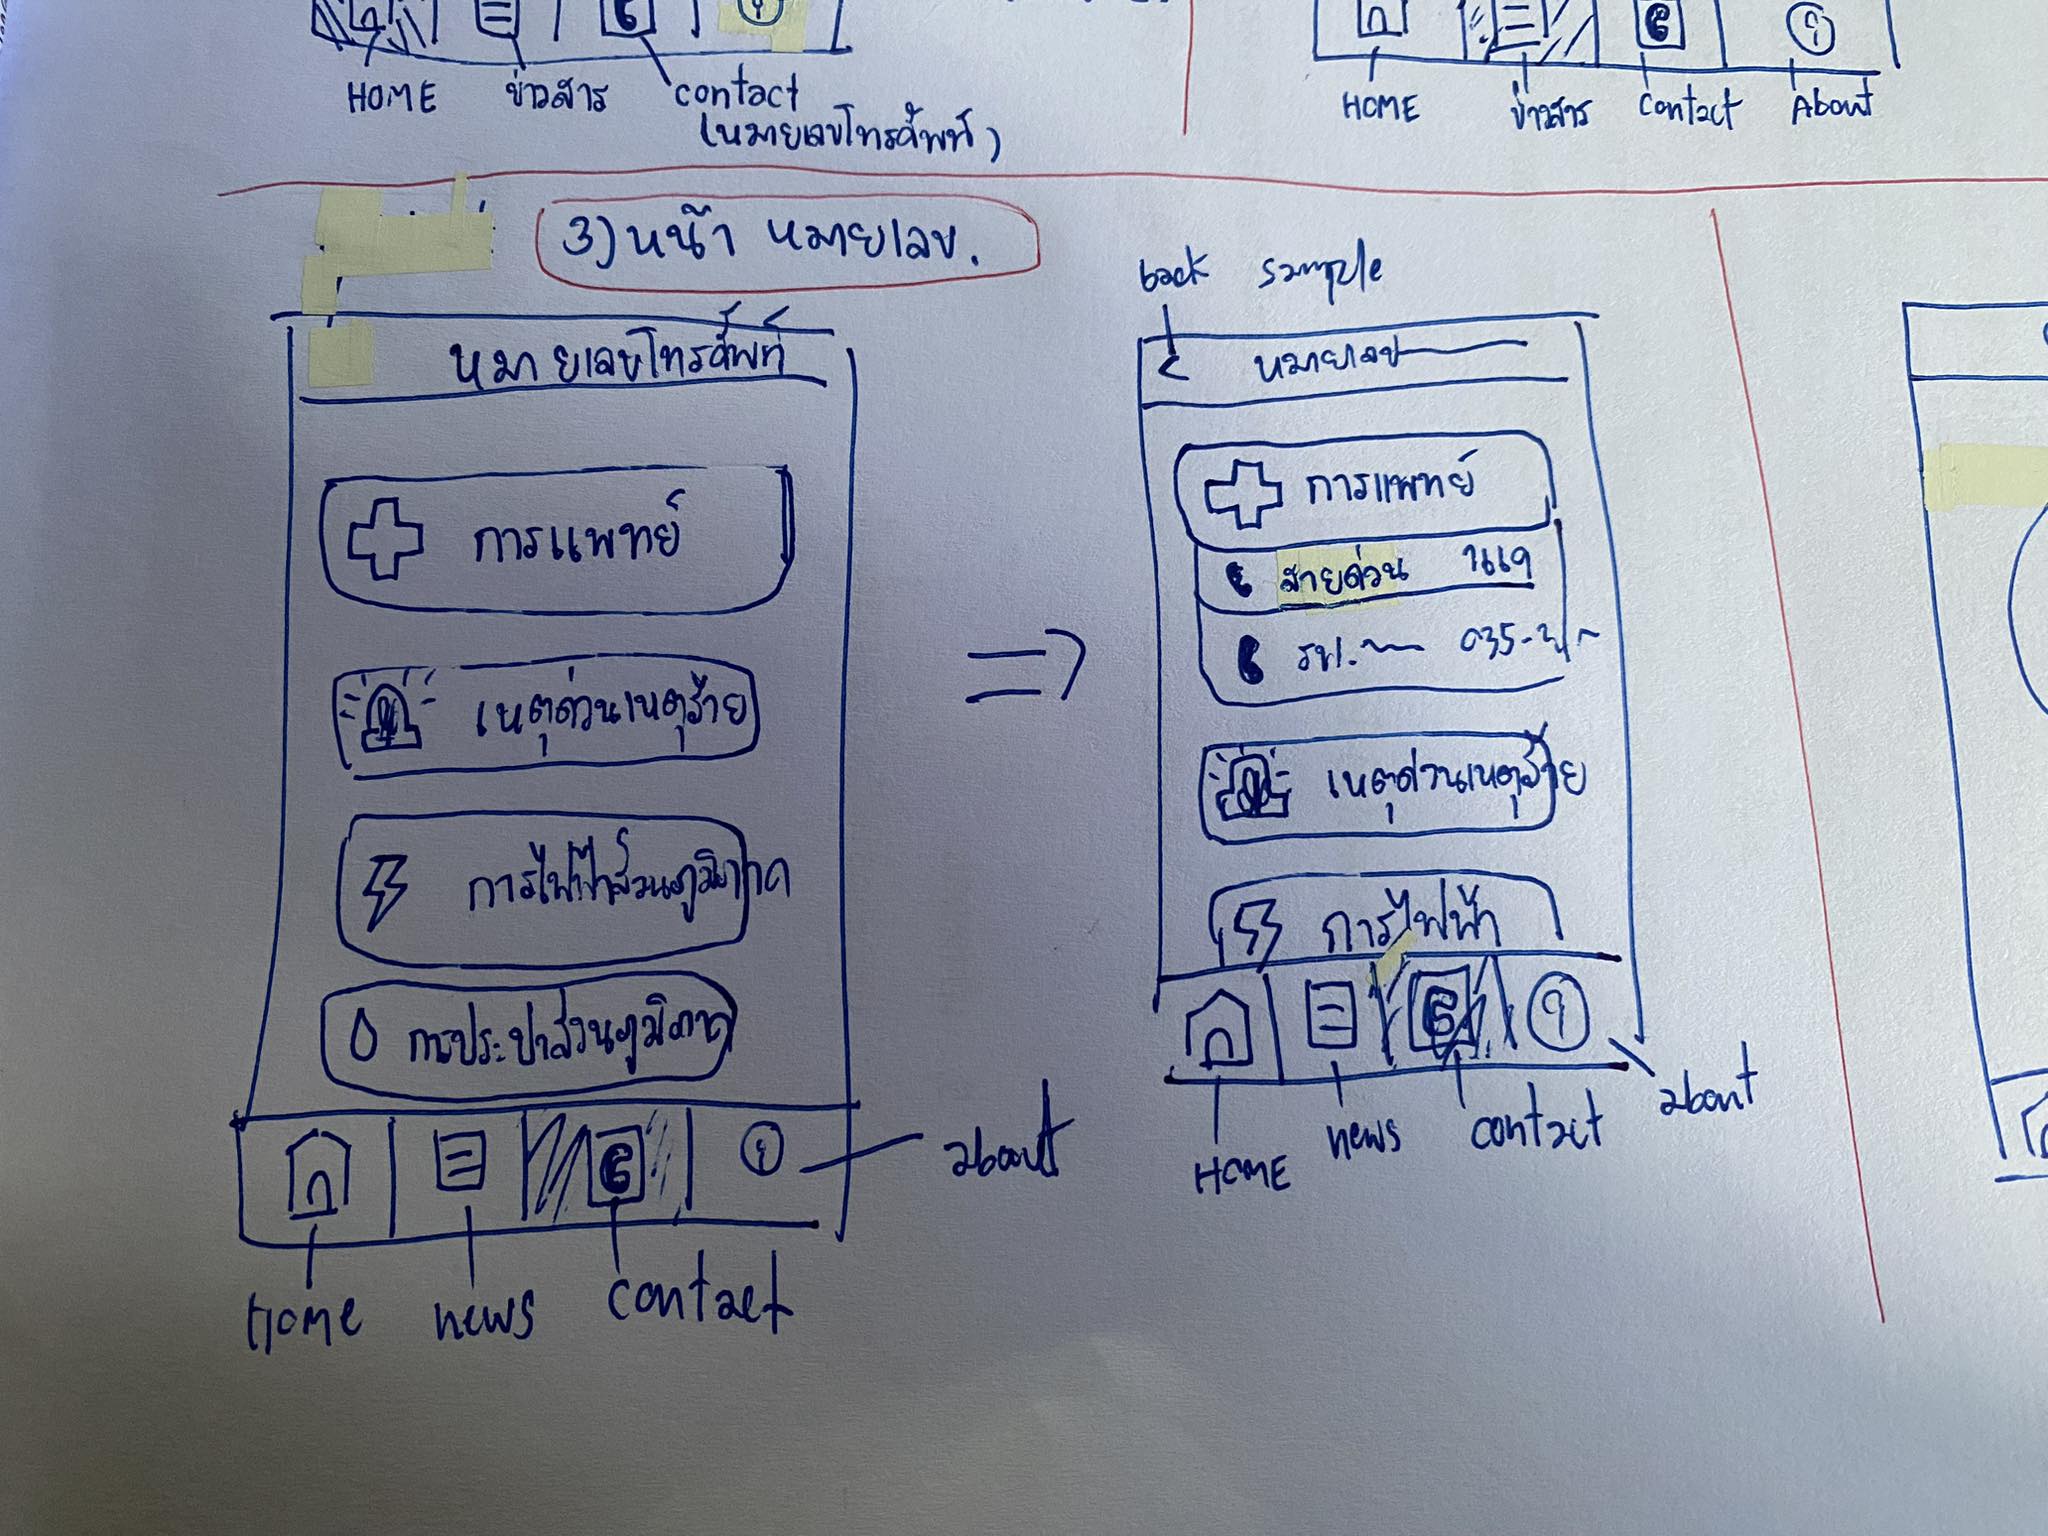 HOME ข่าวสาร contact
(หมายเลขโทรศัพท์)
HOME ข่าวสาร contact About
3) หน้า หมายเลข.
หมายเลขโทรศัพท์
การแพทย์
เหตุด่วนเหตุร้าย
การไฟฟ้าส่วนภูมิภาค
การประปาส่วนภูมิภาค
about
Home news contact
back sample
< หมายเลข
การแพทย์
สายด่วน
รพ. 035-
เหตุด่วนเหตุร้าย
การไฟฟ้า
about
HOME news contact